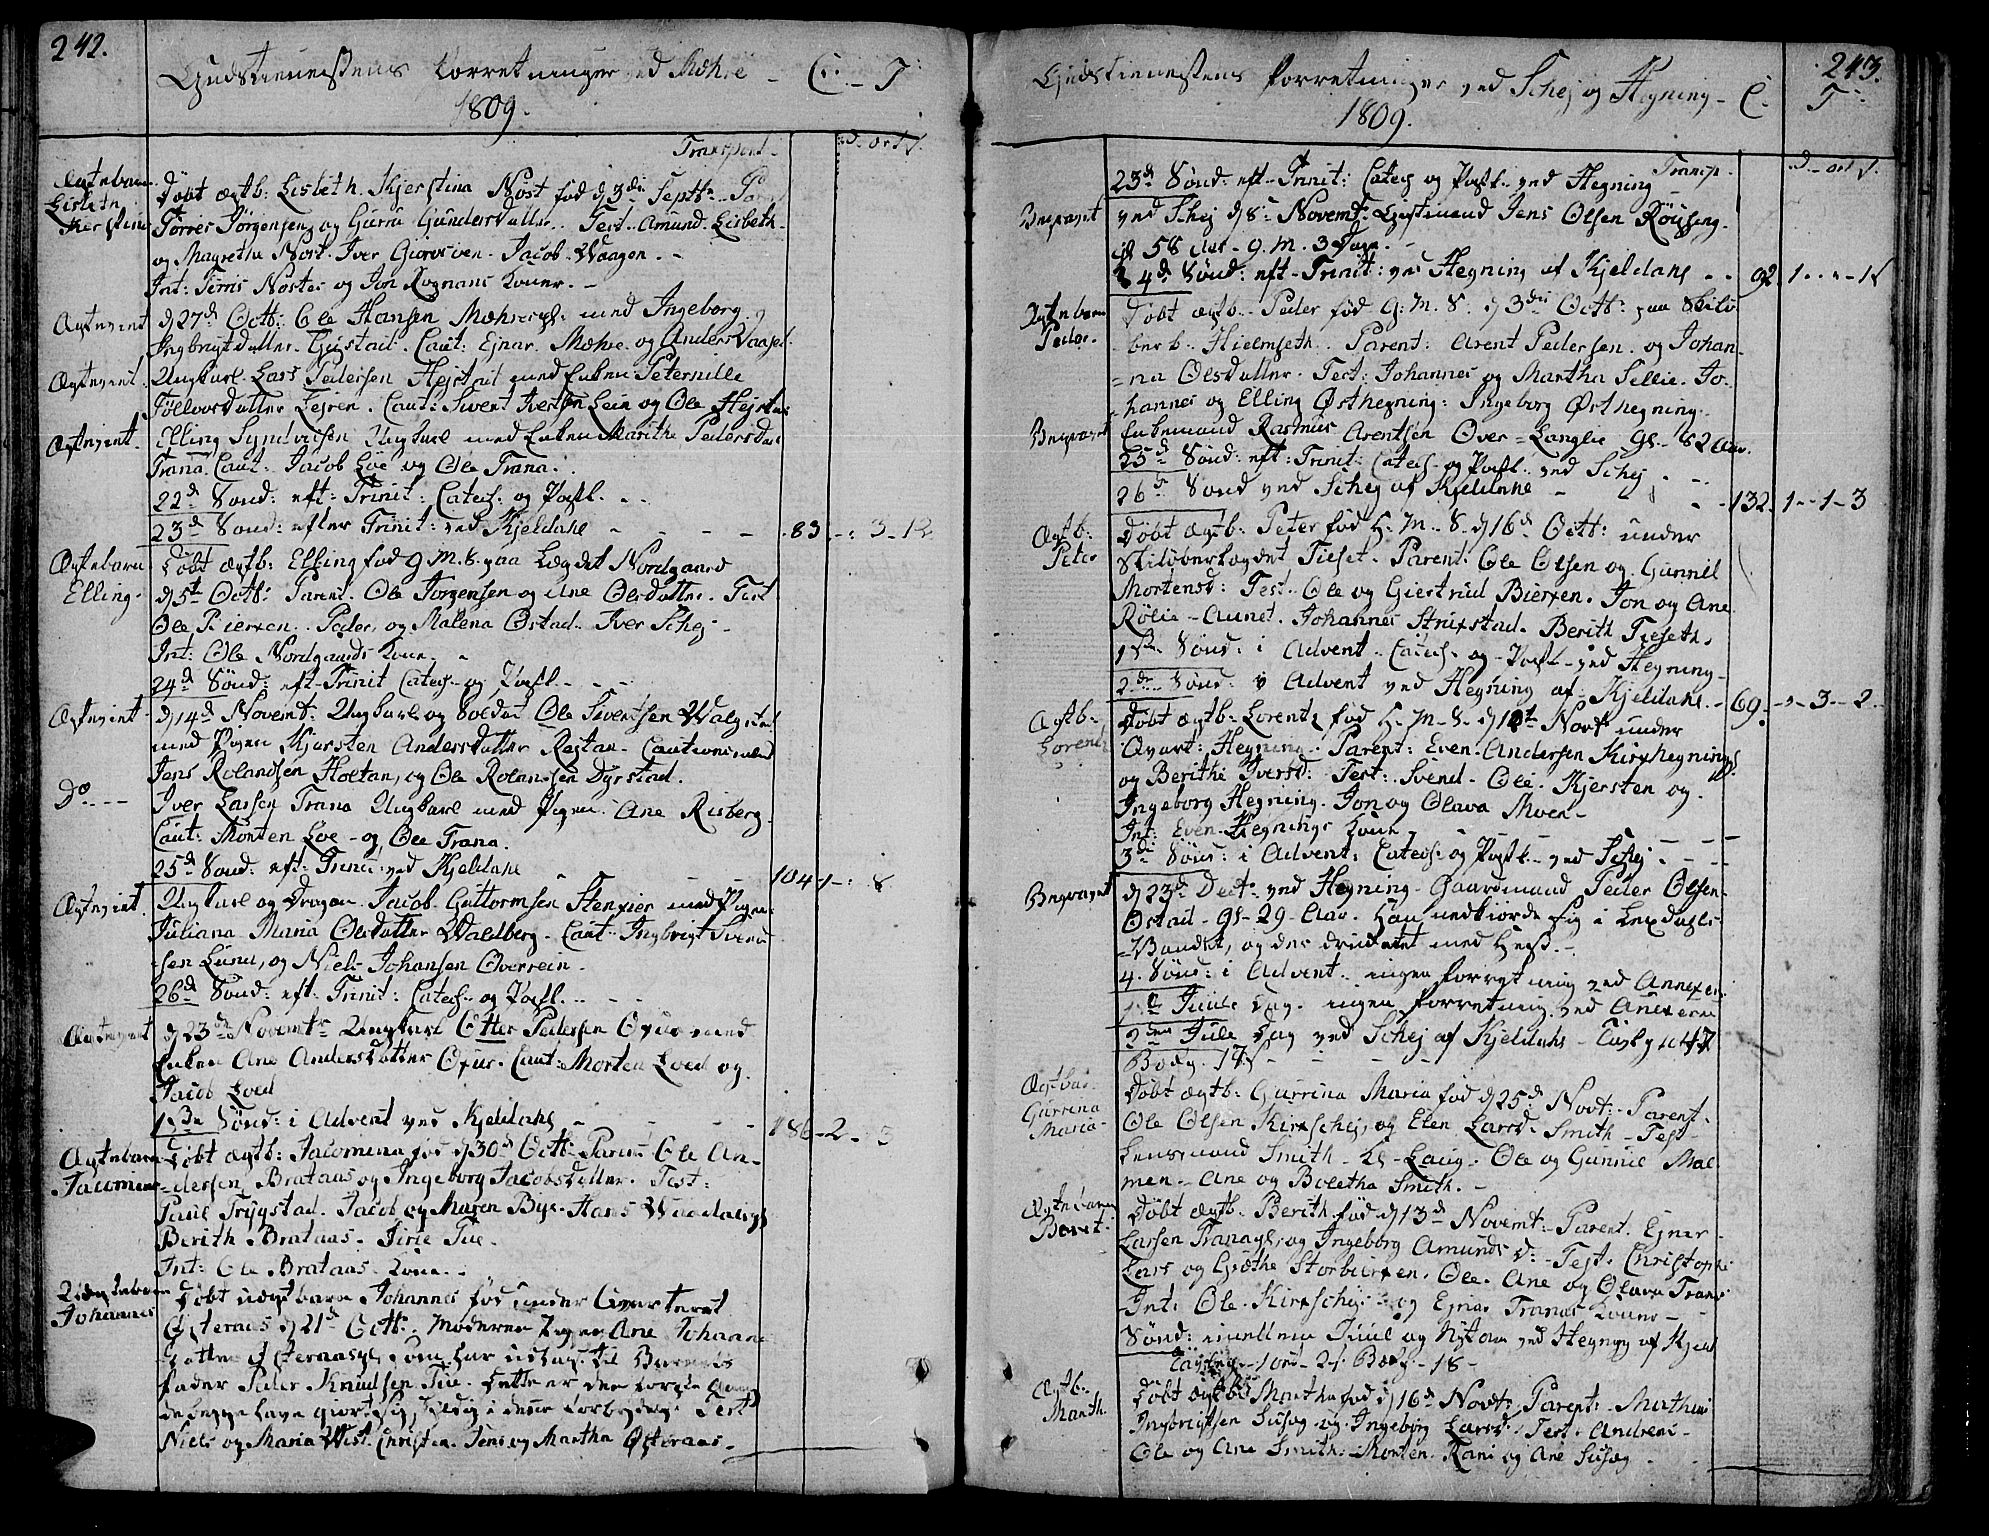 242.
Gudstienestens Forretninger ved Mæhre - C. - T.
1809.
d. ort. s.
Transport.
Ægtebarn
Lisbeth
Kierstina
Døbt ægtb: Lisbeth Kjerstina Nøst fød d 3die Septbr. Par:
Tørres Jörgensen og Gurru Gundersdatter. Test. Amund. Lisbeth
og Magretha Nøst. Iver Jacob Waagen.
Int: Nøstes og Jon Rognans Koner.
Ægteviet
d 27de Octb: Ole Hansen med Ingeborg
Ingbrigtsdatter. Caut: Ejnar Mæhre og Anders
Ægteviet.
Ungkarl Lars Pedersen Hejstad med Enken Peternille
Tollvorsdatter Lejren. Caut: Sivert Iversen Lein og Ole Hejstad
Ægteviet.
Elling Syndvisen Ungkarl med Enken Marithe Pedersdat
Trana. Caut: Jacob Løe og Ole Trana.
22de Sönd: eft: Trinit: Catech: og Postl.
23de Sönd: efter Trinit: ved Kjeldahl - - - 83. - : 3 - 12
Ægtebarn
Elling.
Døbt ægtb: Elling fød 9 M. 8. paa Lægdet Nordgaard
d 5te Octb: Parent. Ole Jorgensen og Ane Olsdatter. Test
Ole Bierxen. Peder, og Malena Østad. Iver Schej -
Int: Ole Nordgaards Kone.
24de Sönd: eft. Trinit Catech: og Postl. - - -
Ægteviet.
d 14de Novemt: Ungkarl og Soldat Ole Sivertsen
med Pigen Kjersten Andersdatter Rejtan. Cautionsmænd
Jens Rolandsen Holtan, og Ole Rolandsen Dyrstad.
Do. - - -
Iver Larsen Trana Ungkarl med Pigen Ane Risberg.
Caut: Morten Løe - og Ole Trana.
25de Sönd: eft: Trinit: ved Kjeldahl - - - 104 - 1 - : 8
Ægteviet.
Ungkarl og Dragon Jacob Guttormsen Stenxier med Pigen
Juliana Maria Olsdatter Waldberg. Caut: Ingbrigt Svend
sen Lund, og Niels Johansen Overrein.
26de Sönd: eft: Trinit: Catech: og Postl. - -
Ægteviet
d 23de Novembr Ungkarl Otter Pedersen med
Enken Ane Andersdatter. Caut: Morten Loed og
Jacob Loed
1ste Sönd: i Advent ved Kjeldahl - - - 186 - 2 - 3
Ægtebarn
Jacomena
Døbt ægtb: Jacomena fød d 30de Octb: Parent Ole An-
dersen Brataas og Ingeborg Jacobsdatter. Test:
Paul Trygstad. Jacob og Maren Bye. Hans
Berith Brataas. Tue.
Int: Ole Brataas Kone.
Johannes
Døbt uægtbarn Johannes fød under Qvarteret
Østeraas d 21de Octb: Moderen Pigen Ane Johannes
datter som har udlagt til Barnets
fader Peder Knudsen Tue. Dette er den første Gang
de begge have giort sig skyldig i denne Forbrydelse. Test
Niels og Maria Wist. Christen. Jens og Martha Østeraas.
243.
Gudstienestens Forretninger ved Schej og Hegning - C. T.
1809.
d - ort s.
Transp.
23de Sönd: eft. Trinit: Catech og Postl. ved Hegning
Begravet
ved Schej d 8de Novemt: Gaardmand Jens Olsen
gl 58 Aar - 9. M. 3 Dage. -
24de Sönd: eft. Trinit: ved Hegning af Kjeldahl - - 92. 1 - - - 15
Ægtebarn
Peder.
Døbt ægtb. Peder fød 9. M. 8. d 3die Octb: paa Skilö
berb. Hielmseth. Parent: Arent Pedersen og Johan-
=na Olsdatter. Test: Johannes og Martha Sellie. Jo-
hannes og Elling Østhegning: Ingeborg Østhegning.
Begravet
Enkemand Rasmus Arentsen Over=Langlie gl. 82 Aar.
25de Sönd: eft: Trinit: Catech: og Postl. ved Schej - - -
26de Sönd ved Schej af Kjeldahl - - - 132. 1 - 1 - 3
Ægtb.
Peter
Døbt ægtb: Peter fød H. M. 8. d 16de Octb: under
Skilöberlægdet Tuset. Parent. Ole Olsen og Gunnil
Mortensd: Test. Ole og Giertrud Bierxen. Jon og Ane
Rölie - Aunet. Johannes Struxstad. Berith Tuseth.
1ste Sönd: i Advent. Catech. og Postl. ved Hegning -
2den Sönd: i Advent ved Hegning af Kjeldahl. - 69. - - 3 - 2.
Ægtb.
Lorentz
Døbt ægtb. Lorentz fød H. M. 8. d Novt: under
Qvart: Hegning. Parent: Even Andersen Kirxhegning
og Berithe Iversd: Test: Svend. Ole. Kjersten og
Ingeborg Hegning. Jon og Olava Moen -
Int: Even Hegnings Kone
3die Sönd: i Advent: Catech: og Postl. ved Schej - - -
Begravet
d 23de Decb. ved Hegning - Gaardmand Peder Olsen
Østad - gl. 29 - Aar. Han nedkiørde sig i Lexdahls
=Vandet, og der druknet med Hest. -
4. Sönd: i Advent. ingen Forretning ved Annexerne
1ste Juule Dag. ingen Forretning ved Anexerne
2den Jule Dag ved Schej af Kjeldahl -
17s
Ægtbar.
Gurrina
Maria -
Døbt ægtb: Gurrina Maria fød d 25de Novt: Parent.
Ole Olsen Kirxschej, og Elen Larsd. Smith - Test -
Lensmand Smith - Laug. Ole og Gunnil Mal
men. - Ane og Boletha Smith. -
Ægtebarn
Beret.
Døbt ægtb. Berith fød d 13de Novemt: Parent. Ejner
Larsen og Ingeborg Amundsd: - Test. Christopher
Lars og Grethe Storbierxen. Ole. Ane og Olava Trana
Int: Ole Kirxschej - og Ejner Tranas Koner -
Sönd: imellem Juul og Nytaar ved Hegning af Kjeld
1 ort - 2s. - 18 -
Ægtb.
Marth.
Døbt ægtb: Martha fød d 16de Novt: Parent: Mathias
Ingbrigtsen Susæg. og Ingeborg Larsd. Test. Andreas
Ole og Ane Smith. Morten. Rani og Ane Susæg -